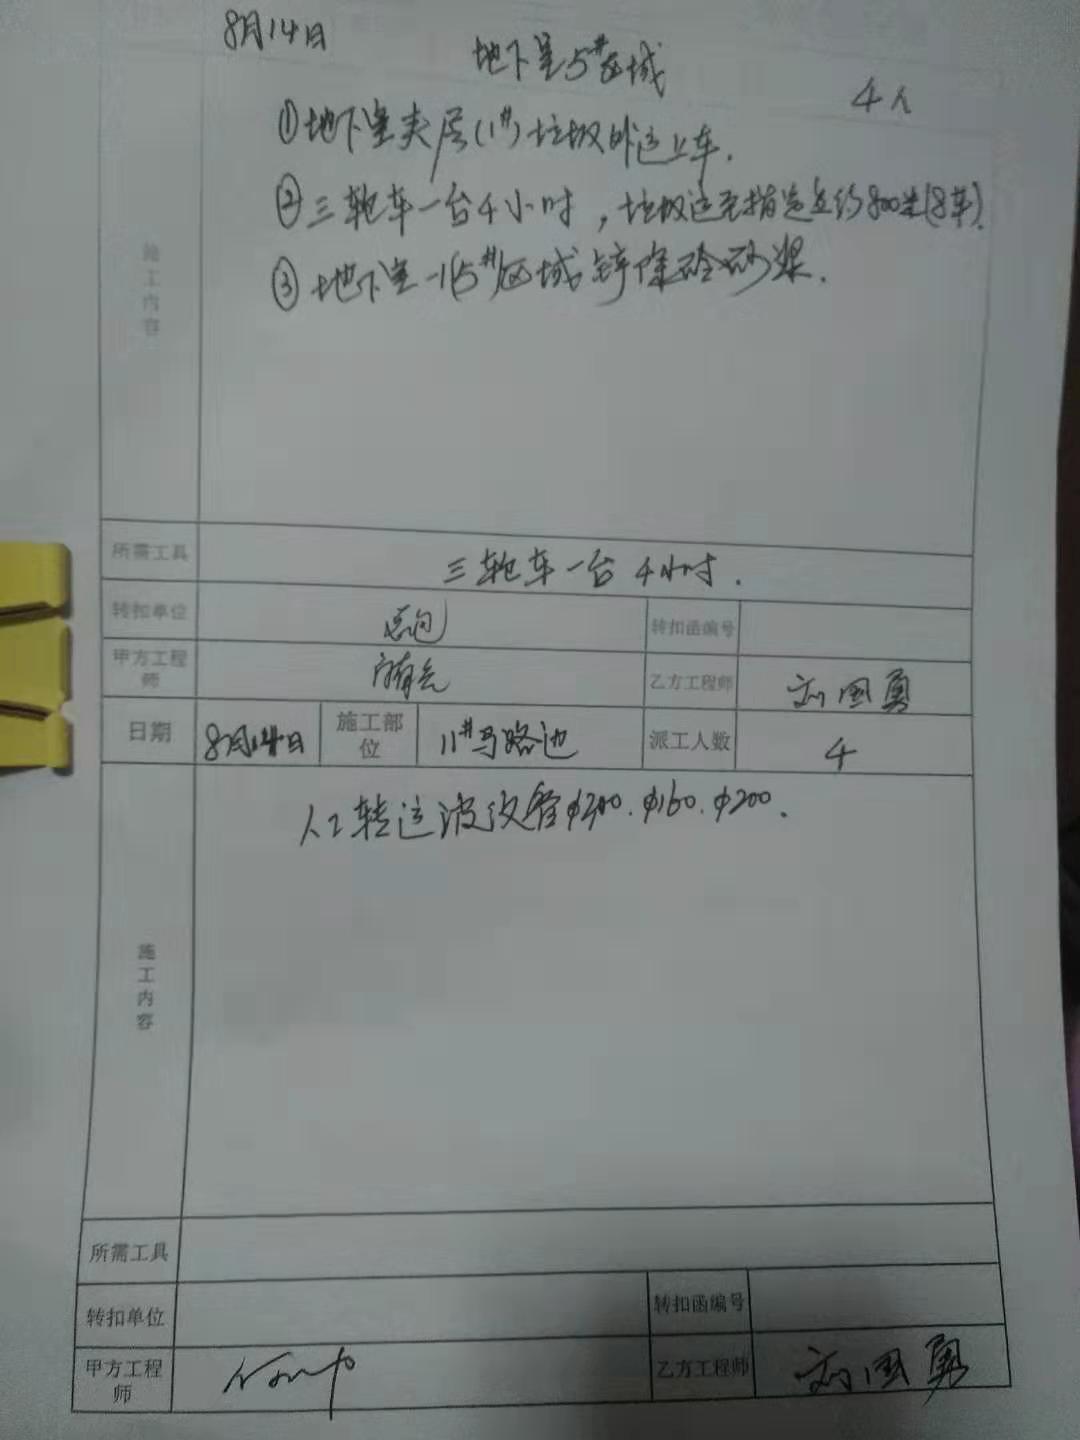 8月14日 地下室5#区域 4人
①地下室夹层(11#)垃圾外运上车.
②三轮车一台4小时，垃圾运至指定点约800米(8车).
③地下室-1(5#)区域锌除砼砂浆.
施工内容
所需工具 三轮车一台 4小时.
转扣单位 总包 转扣函编号
甲方工程师 乙方工程师 刘国勇
日期 8月14日 施工部位 11#马路边 派工人数 4
人工转运波纹管φ300.φ160.φ200.
施工内容
所需工具
转扣单位 转扣函编号
甲方工程师 乙方工程师 刘国勇